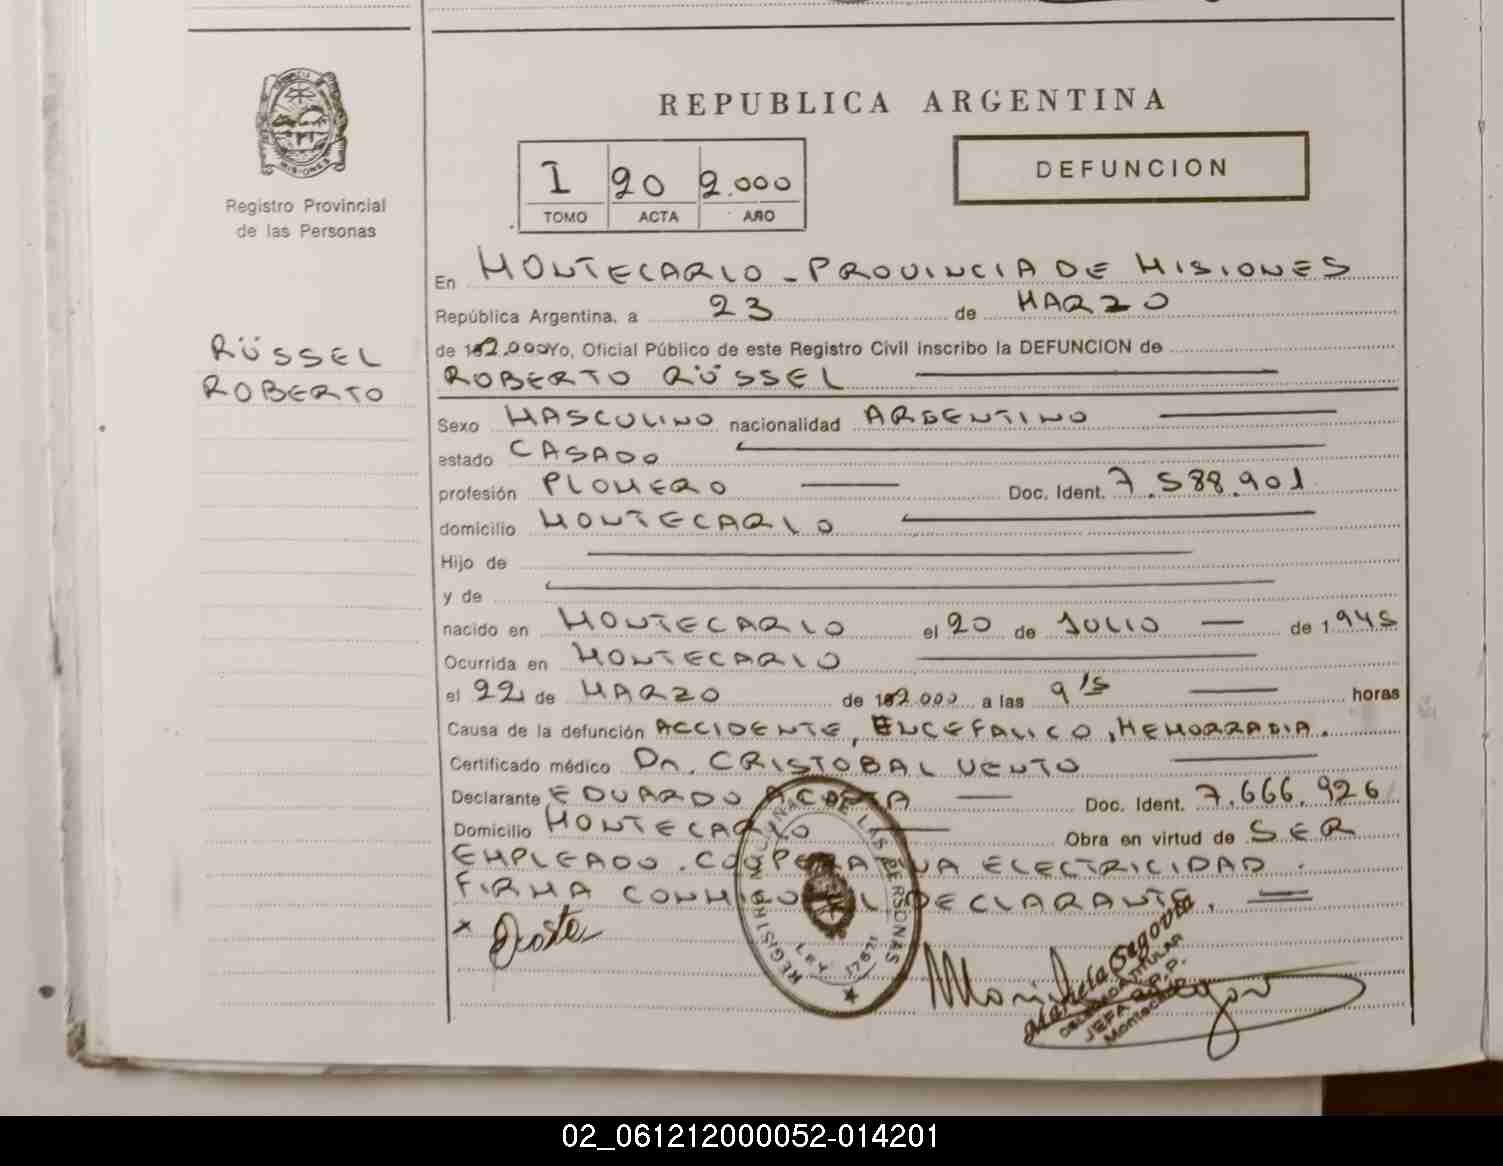 REPUBLICA ARGENTINA
I 20 2.000
TOMO ACTA AÑO
DEFUNCION
MISIONES
Registro Provincial
de las Personas
En MONTECARLO - PROVINCIA DE MISIONES
República Argentina, a 23 de MARZO
de 2.000 Yo, Oficial Público de este Registro Civil inscribo la DEFUNCION de
RÜSSEL
ROBERTO
ROBERTO RÜSSEL
Sexo MASCULINO nacionalidad ARGENTINO
estado CASADO
profesión PLOMERO Doc. Ident. 7.588.901
domicilio MONTECARLO
Hijo de
y de
nacido en MONTECARLO el 20 de JULIO de 1.945
Ocurrida en MONTECARLO
el 22 de MARZO de 2.000 a las 9'15 horas
Causa de la defunción ACCIDENTE, ENCEFALICO, HEMORRAGIA.
Certificado médico Dr. CRISTOBAL VENTO
Declarante EDUARDO ACOSTA Doc. Ident. 7.666.926
Domicilio MONTECARLO Obra en virtud de SER
EMPLEADO. COOPERATIVA ELECTRICIDAD.
FIRMA CONMIGO EL DECLARANTE.
x Acosta
DE LAS PERSONAS
Segovia
DELEGADO TITULAR
JEFA R.P.P.
Montecarlo
02_061212000052-014201